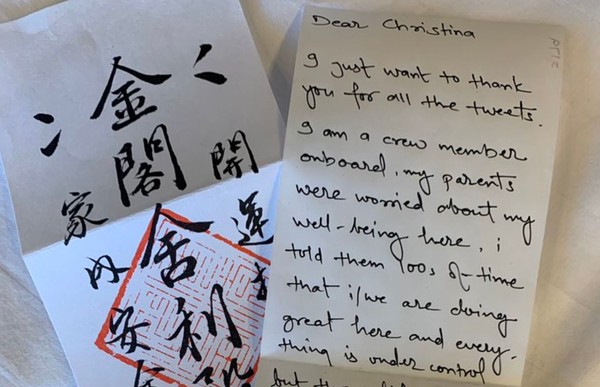 開運
金閣舎利
家内安
Dear Christina
I just want to thank
you for all the tweets.
I am a crew member
onboard, my parents
were worried about my
well-being here, i
told them 100s of-time
that i/we are doing
great here and every-
thing is under control
but